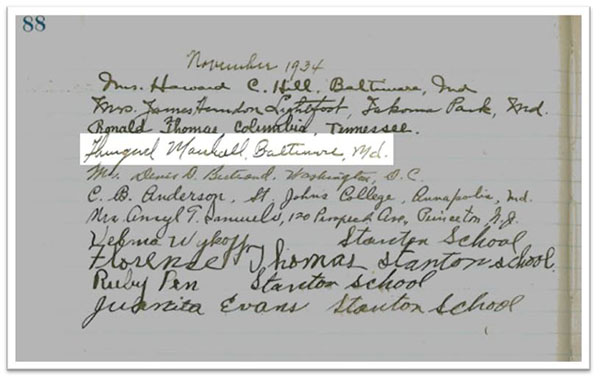 88
November 1934
Mrs. Howard C. Hill, Baltimore, Md
Mrs. James Herndon Lightfoot, Takoma Park, Md.
Ronald Thomas, Columbia, Tennessee.
Thurgood Marshall, Baltimore, Md.
D. Bertrand, Washington, D.C.
C. B. Anderson, St. Johns College, Annapolis, Md.
T. Samuels, 120 Prospect Ave, Princeton N.J.
Velma Wykoff Stanton School
Florense Thomas Stanton School.
Ruby Pen Stanton School
Juanita Evans Stanton School